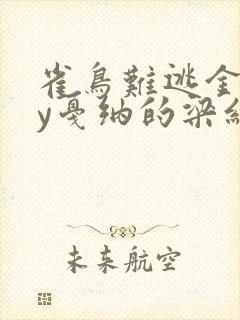 雀鳥難逃金
y戛纳的梁纟
未来航空